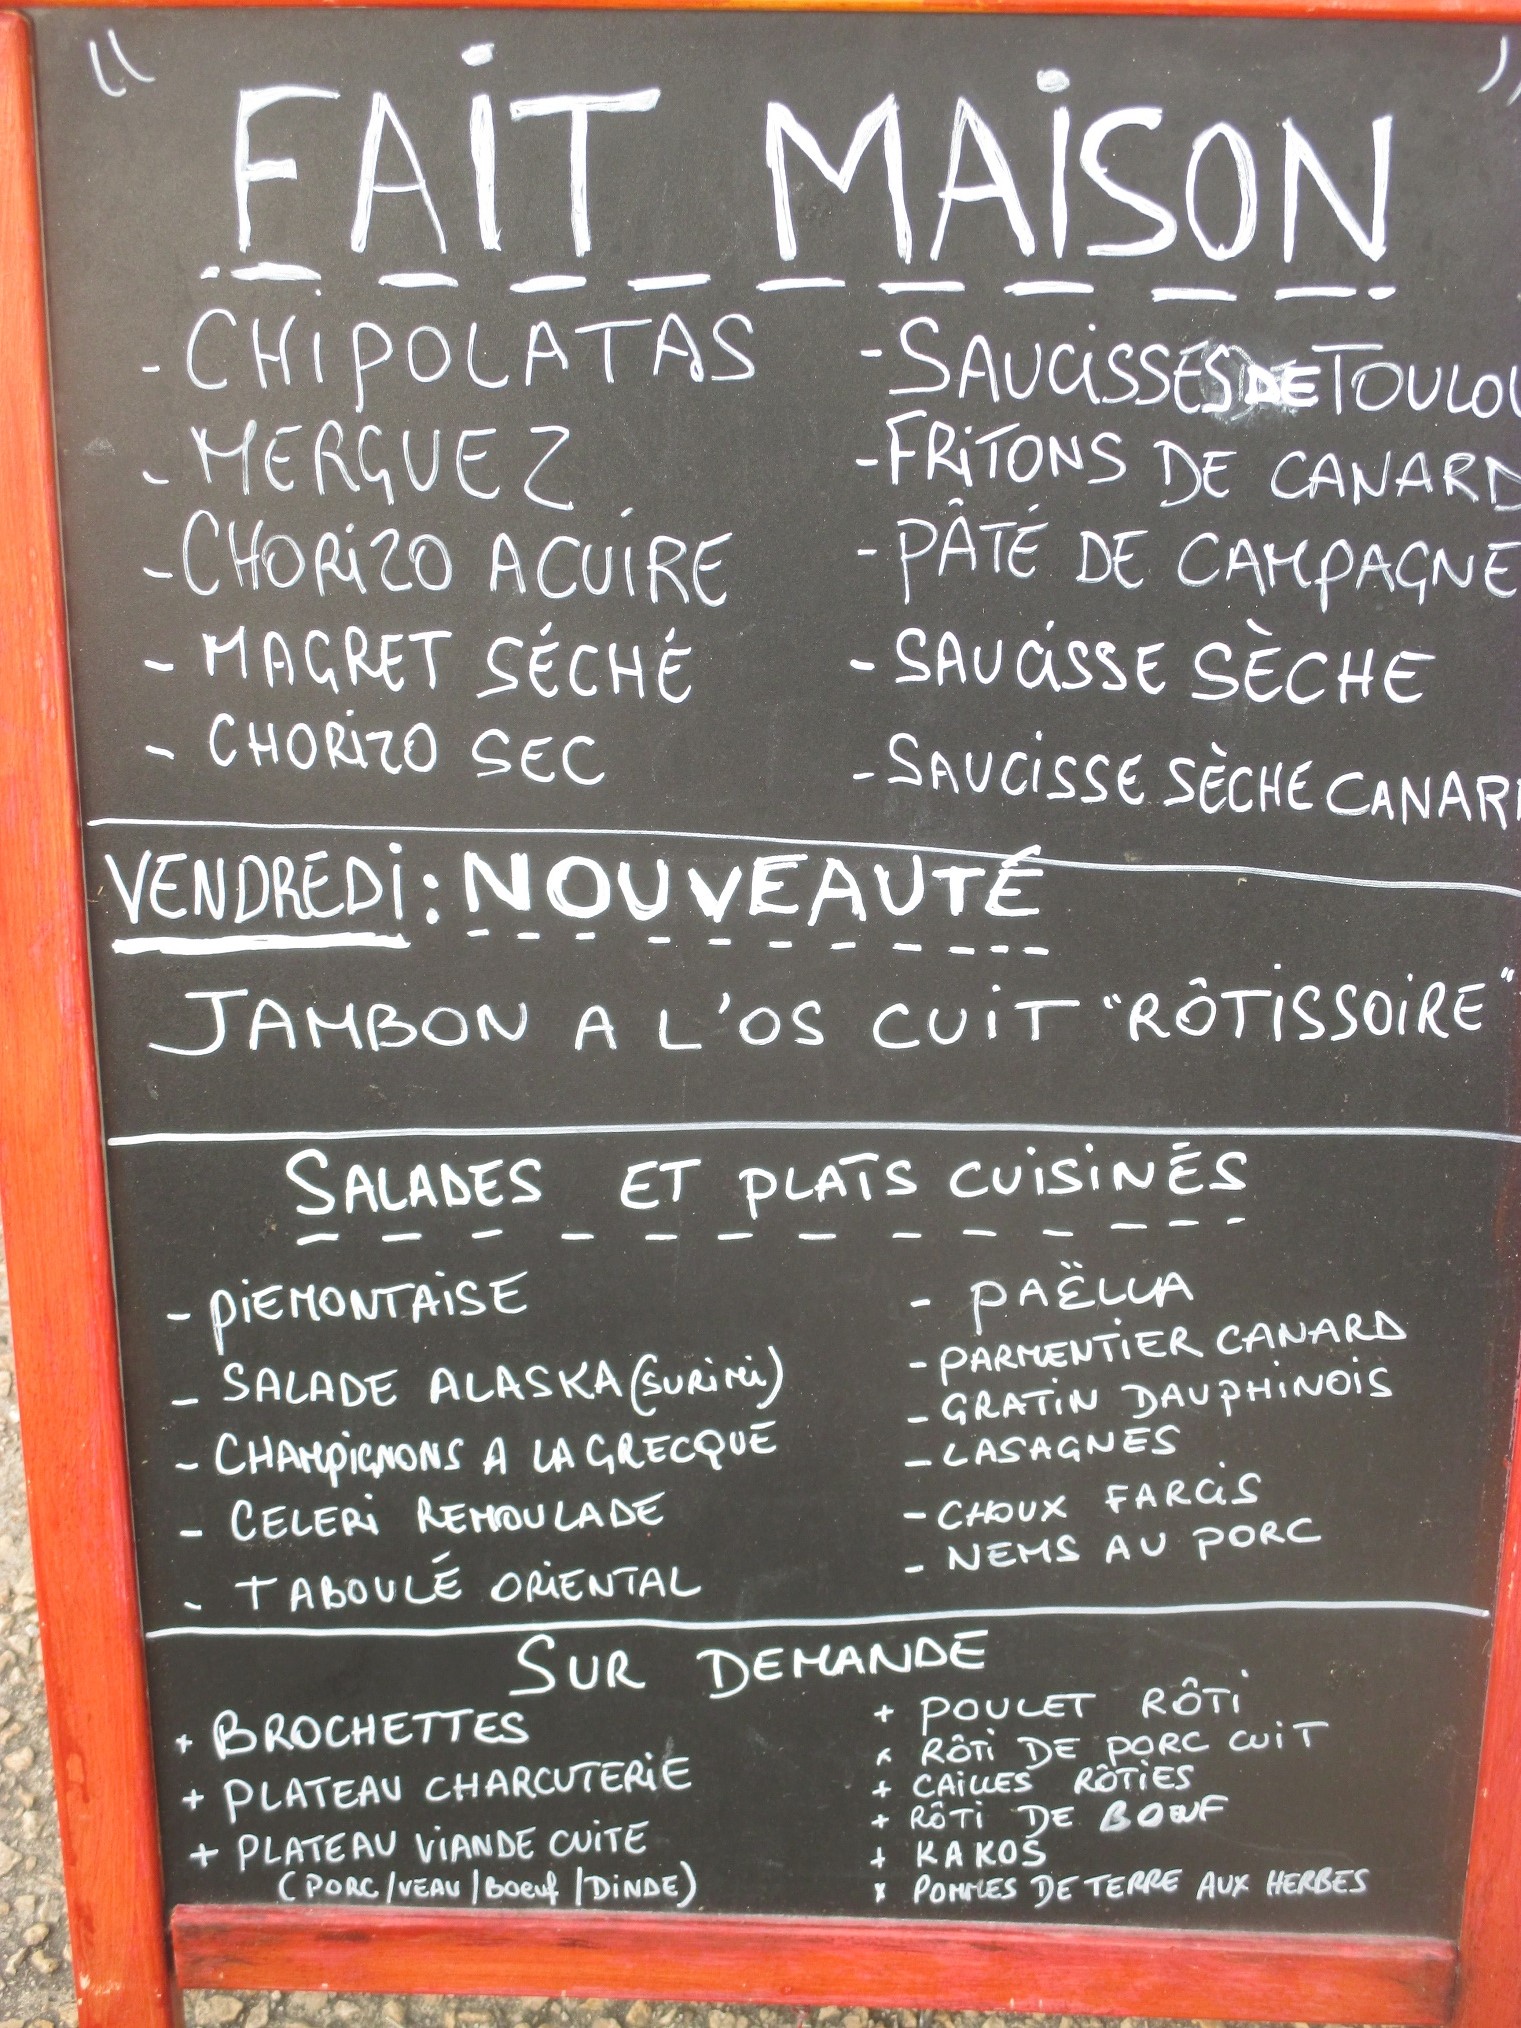 " FAIT MAISON "
- CHIPOLATAS
- MERGUEZ
- CHORIZO A CUIRE
- MAGRET SÉCHÉ
- CHORIZO SEC
- SAUCISSES DE TOULOU
- FRITONS DE CANARD
- PÂTÉ DE CAMPAGNE
- SAUCISSE SÈCHE
- SAUCISSE SÈCHE CANARD
VENDREDI : NOUVEAUTÉ
JAMBON A L'OS CUIT "RÔTISSOIRE"
SALADES ET PLATS CUISINÉS
- PIEMONTAISE
- SALADE ALASKA (SURIMI)
- CHAMPIGNONS A LA GRECQUE
- CELERI REMOULADE
- TABOULÉ ORIENTAL
- PAËLLA
- PARMENTIER CANARD
- GRATIN DAUPHINOIS
- LASAGNES
- CHOUX FARCIS
- NEMS AU PORC
SUR DEMANDE
+ BROCHETTES
+ PLATEAU CHARCUTERIE
+ PLATEAU VIANDE CUITE
(PORC/VEAU/BOEUF/DINDE)
+ POULET RÔTI
+ RÔTI DE PORC CUIT
+ CAILLES RÔTIES
+ RÔTI DE BOEUF
+ KAKOS
+ POMMES DE TERRE AUX HERBES